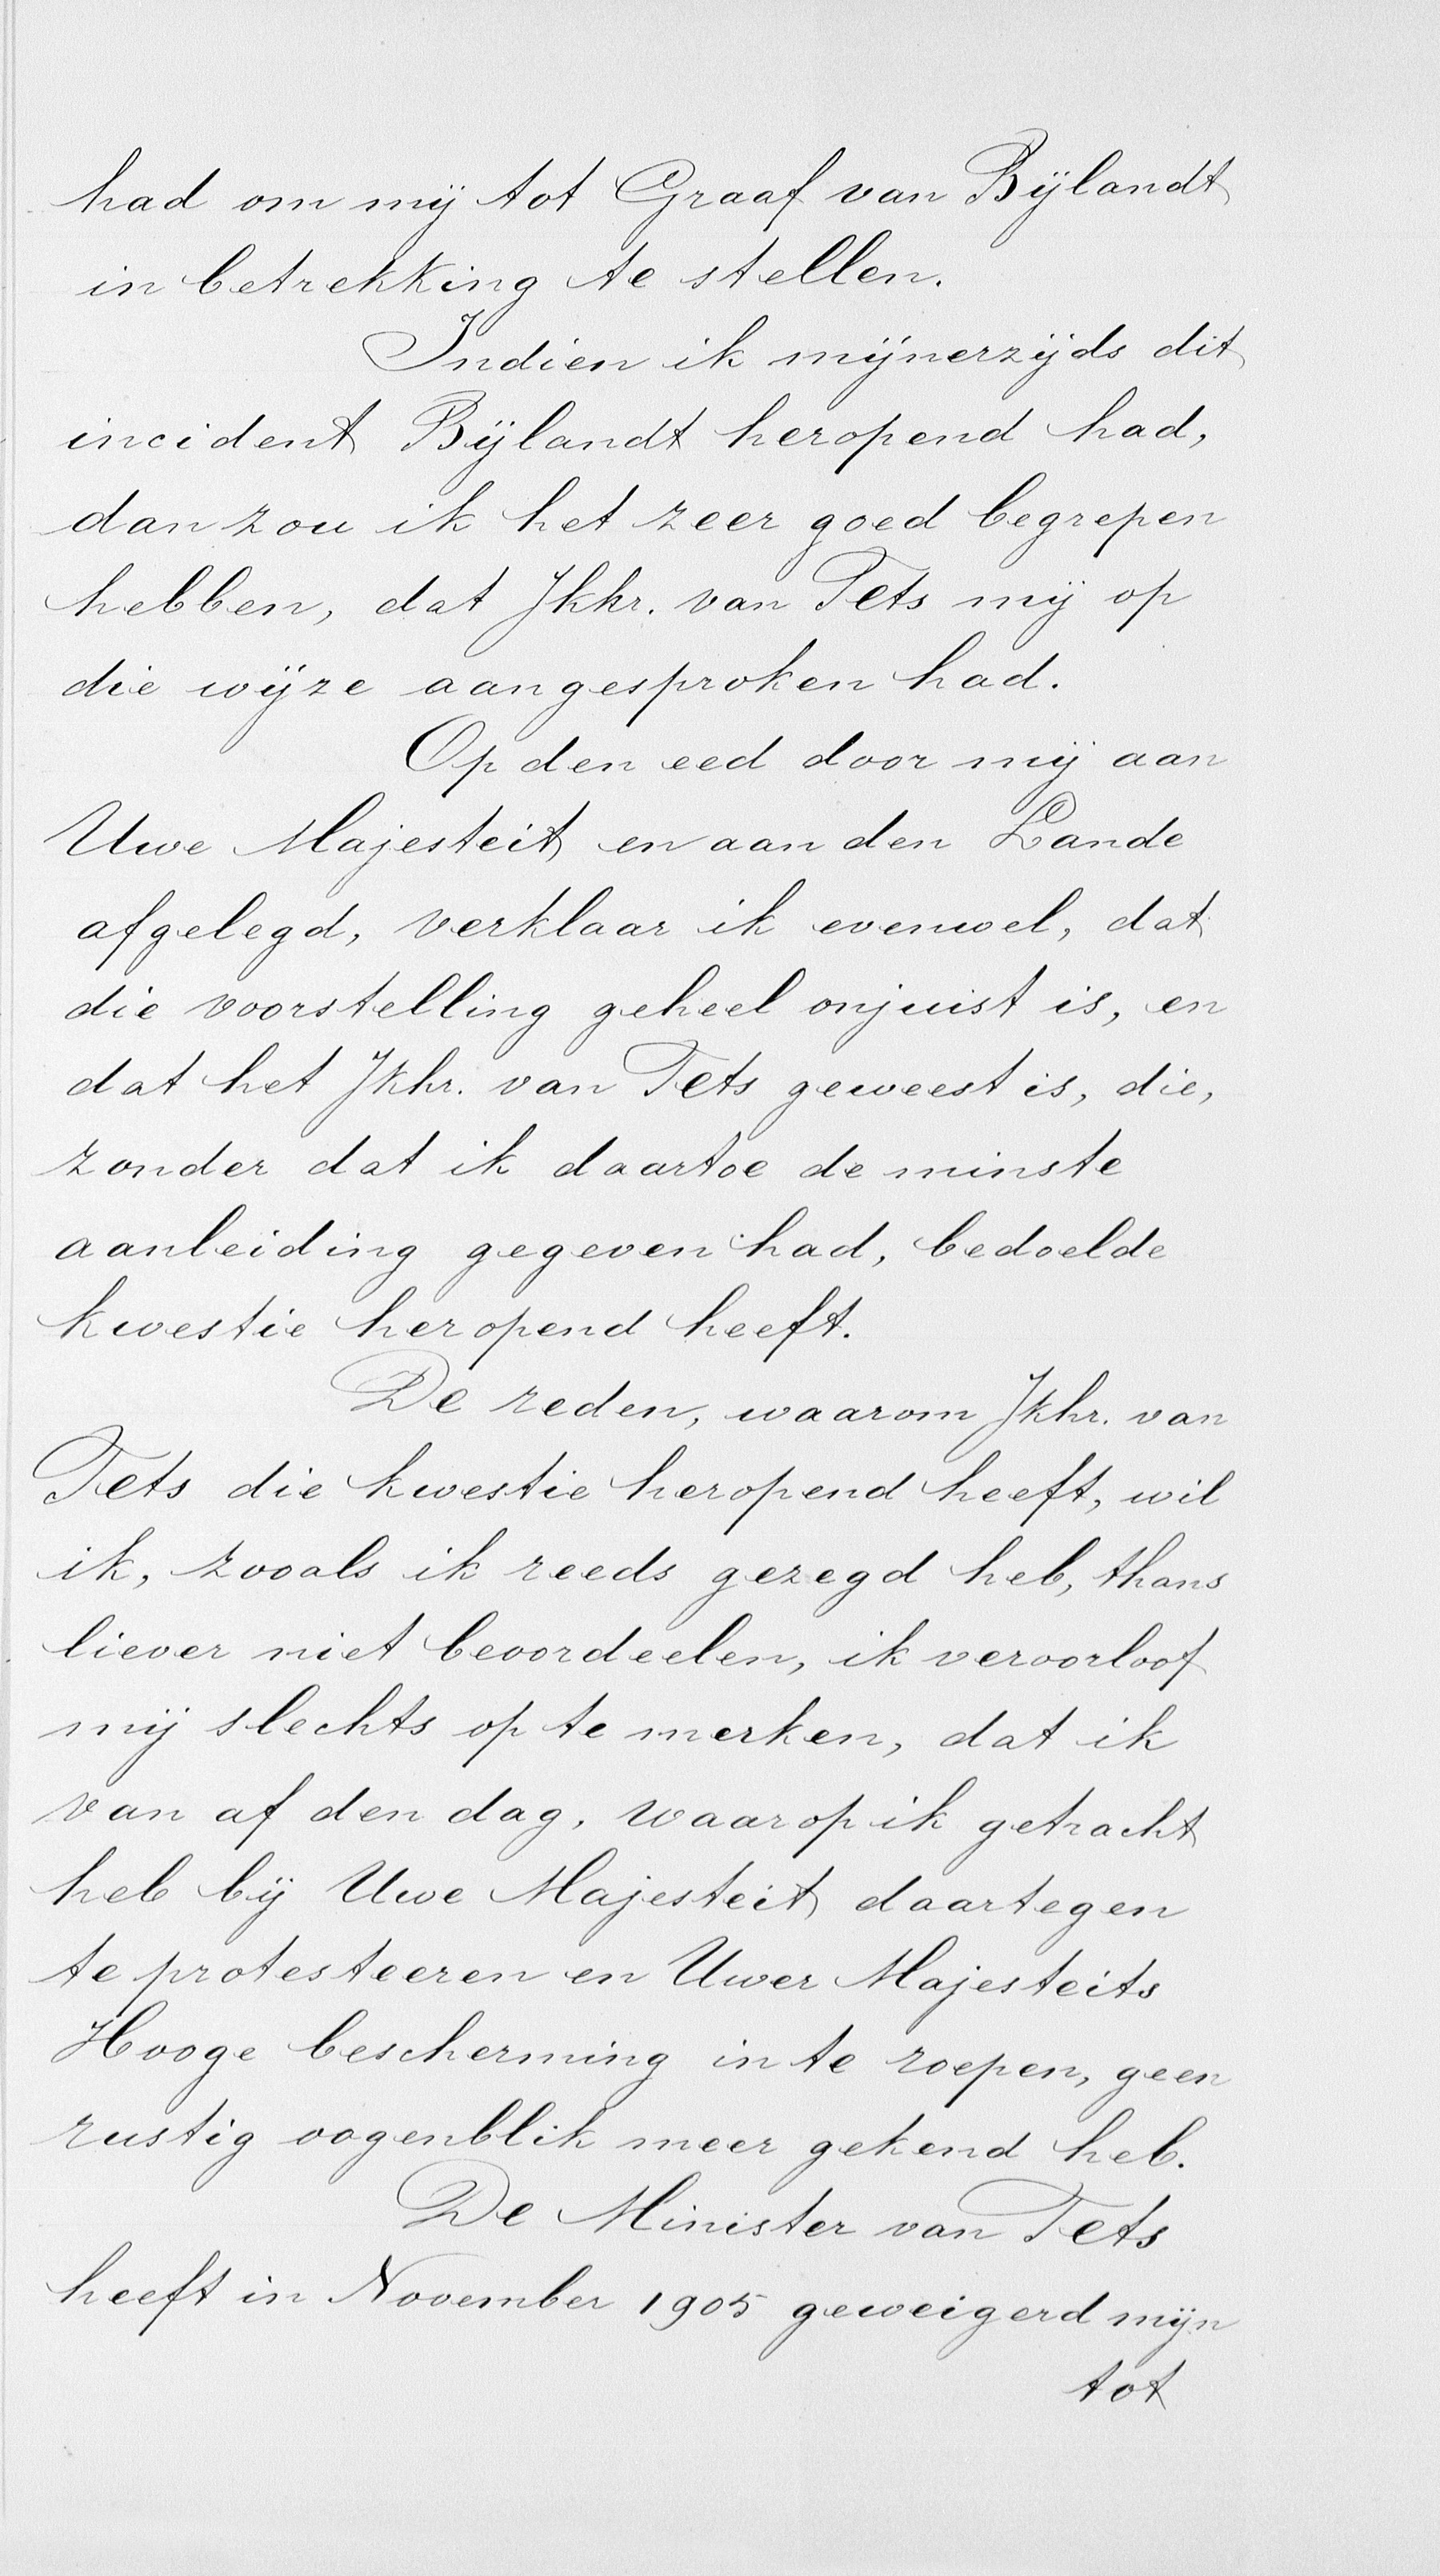 had om mij tot Graaf van Bijlandt
in betrekking te stellen.
Indien ik mijnerzijds dit
incident Bijlandt heropend had,
dan zou ik het zeer goed begrepen
hebben, dat Jkhr. van Tets mij op
die wijze aangesproken had.
Op den eed door mij aan
Uwe Majesteit en aan den Lande
afgelegd, verklaar ik evenwel, dat
die voorstelling geheel onjuist is, en
dat het Jkhr. van Tets geweest is, die,
zonder dat ik daartoe de minste
aanleiding gegeven had, bedoelde
kwestie heropend heeft.
De reden, waarom Jkhr. van
Tets die kwestie heropend heeft, wil
ik, zooals ik reeds gezegd heb, thans
liever niet beoordeelen, ik veroorloof
mij slechts op te merken, dat ik
van af den dag, waarop ik getracht
heb bij Uwe Majesteit daartegen
te protesteeren en Uwer Majesteits
Hooge bescherming in te roepen, geen
rustig oogenblik meer gekend heb.
De Minister van Tets
heeft in November 1905 geweigerd mijn
tot